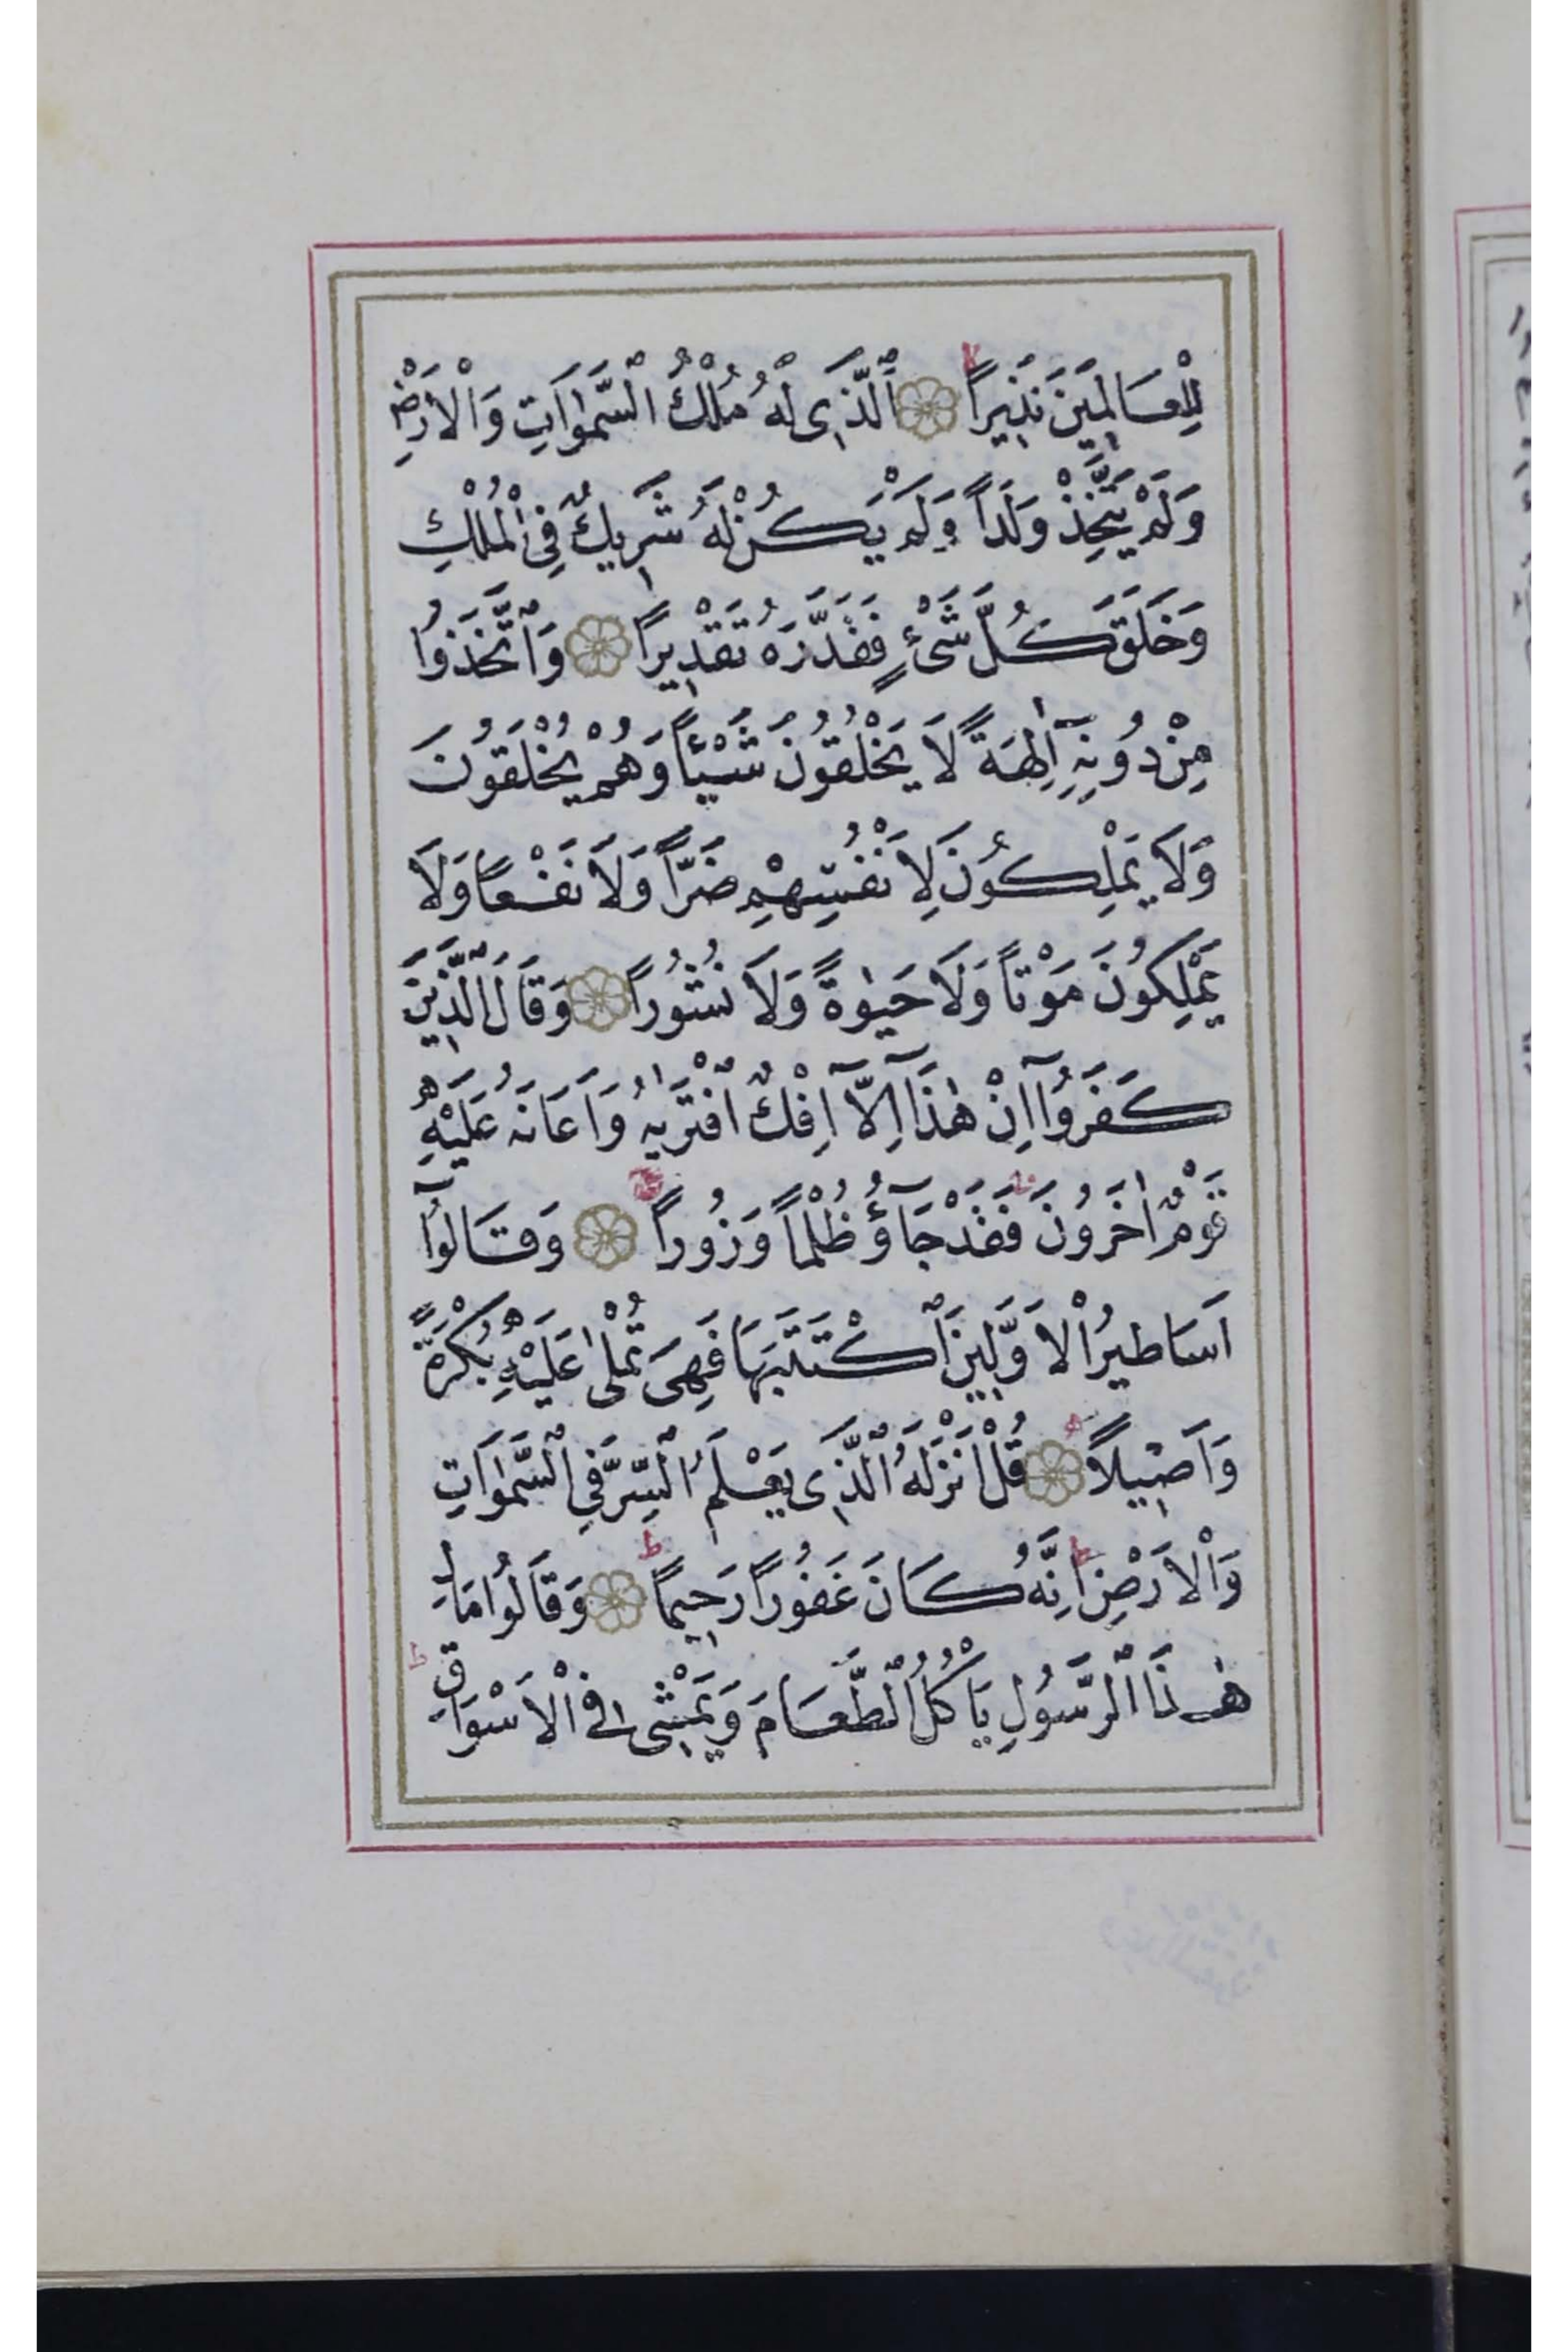 لِلْعَالَمِينَ نَذِيرًا ۙ اَلَّذِى لَهُ مُلْكُ السَّمٰوَاتِ وَالْاَرْضِ
وَلَمْ يَتَّخِذْ وَلَدًا وَلَمْ يَكُنْ لَهُ شَرِيكٌ فِى الْمُلْكِ
وَخَلَقَ كُلَّ شَىْءٍ فَقَدَّرَهُ تَقْدِيرًا وَاتَّخَذُوا
مِنْ دُونِهِٓ اٰلِهَةً لَا يَخْلُقُونَ شَيْـًٔا وَهُمْ يُخْلَقُونَ
وَلَا يَمْلِكُونَ لِاَنْفُسِهِمْ ضَرًّا وَلَا نَفْعًا وَلَا
يَمْلِكُونَ مَوْتًا وَلَا حَيٰوةً وَلَا نُشُورًا وَقَالَ الَّذِينَ
كَفَرُوٓا اِنْ هٰذَٓا اِلَّٓا اِفْكٌ افْتَرٰيهُ وَاَعَانَهُ عَلَيْهِ
قَوْمٌ اٰخَرُونَ فَقَدْ جَٓاؤُ ظُلْمًا وَزُورًا وَقَالُوٓا
اَسَاطِيرُ الْاَوَّلِينَ اكْتَتَبَهَا فَهِىَ تُمْلٰى عَلَيْهِ بُكْرَةً
وَاَصِيلًا قُلْ اَنْزَلَهُ الَّذِى يَعْلَمُ السِّرَّ فِى السَّمٰوَاتِ
وَالْاَرْضِ ۜ اِنَّهُ كَانَ غَفُورًا رَحِيمًا ط وَقَالُوا مَالِ
هٰذَا الرَّسُولِ يَاْكُلُ الطَّعَامَ وَيَمْشِى فِى الْاَسْوَاقِ ط